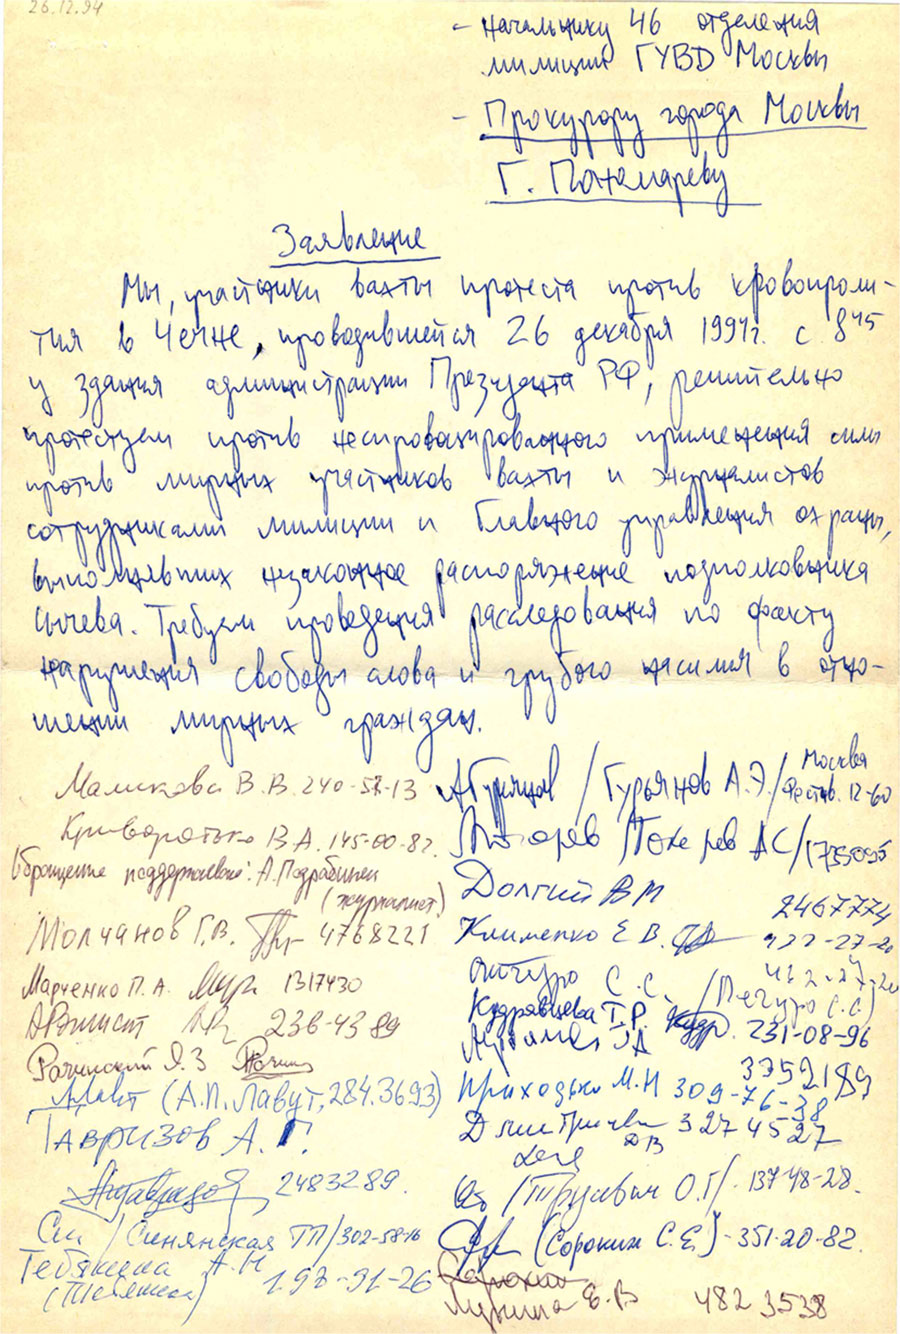 26.12.94
- Начальнику 46 отделения
милиции ГУВД Москвы
- Прокурору города Москвы
Г. Пономареву
Заявление
Мы, участники вахты протеста против кровопроли-
тия в Чечне, проводившейся 26 декабря 1994г. с 8 45
у здания администрации Президента РФ, решительно
протестуем против неспровоцированного применения силы
против мирных участников вахты и журналистов
сотрудниками милиции и Главного управления охраны,
выполнявших незаконное распоряжение подполковника
Сычева. Требуем проведения расследования по факту
нарушения свободы слова и грубого насилия в отно-
шении мирных граждан.
Маликова В.В. 240-57-13
Криворотько В А. 145-00-82.
Обращение поддерживаю: А. Подрабинек
(журналист)
Молчанов Г.В. 4768221
Марченко П.А. 1317430
236-43 89
Рачинский Я.З
(А.П. Лавут, 284.3693)
Тавризов А.Г.
2483289.
/ Синянская ТП/ 302-58-16
Тебякина А.Н
(Тебякина) 193-91-26
/Гурьянов А.Э./ Москва
Фестив. 12-60
/Токарев АС/ 1735095
Долгий ВМ 2467774
Клименко Е В. 422-27-20
С.С. 422-27-20
(Печуро С.С.)
Кудрявцева Т.Р. Кудр. 231-08-96
3352189
Приходько М.Н 309-76-38
Дмитриева ДВ 3274527
/Трусевич О.Г/ - 137-48-28.
(Сорокин С.Е.) - 351-20-82.
Е.В 482 3538